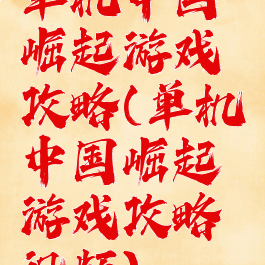 单机中国
崛起游戏
攻略(单机
中国崛起
游戏攻略
视频)